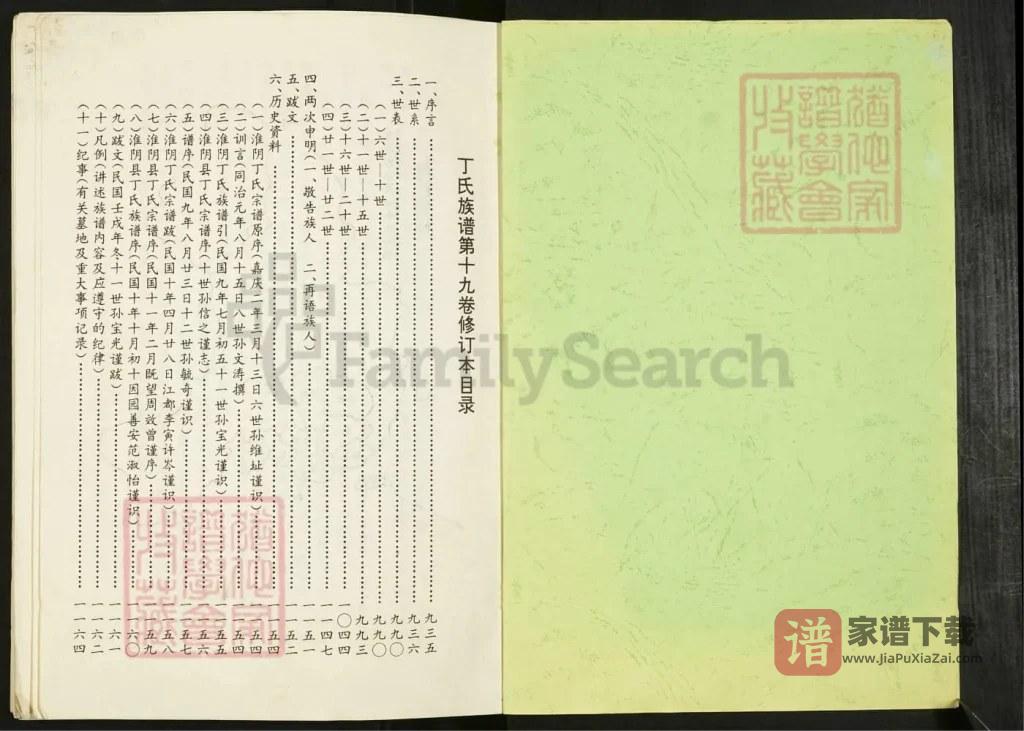 丁氏族谱第十九卷修订本目录
一、序言……九三五
二、世系……九三六
三、世表……九九〇
(一)六世—十世……九九〇
(二)十一世—十五世……九九三
(三)十六世—二十世……一〇四四
(四)廿一世—廿二世……一一四七
四、两次申明(一、敬告族人 二、再语族人)……一一五一
五、跋文……一一五二
六、历史资料……一一五四
(一)淮阴丁氏宗谱原序(嘉庆二年三月十三日六世孙维址谨识)……一一五四
(二)训言(同治元年八月十五日八世孙文涛撰)……一一五四
(三)淮阴丁氏族谱引(民国九年七月初五十一世孙宝光谨识)……一一五五
(四)淮阴县丁氏宗谱序(十世孙信之谨志)……一一五六
(五)谱序(民国九年八月廿三日十二世孙毓奇谨识)……一一五七
(六)淮阴丁氏宗谱跋(民国十年四月廿八日江都李寅许岑谨识)……一一五八
(七)淮阴县丁氏宗谱序(民国十一年二月既望周效曾谨序)……一一五九
(八)淮阴县丁氏族谱序(民国十年十月初十因园善安范淑怡谨识)……一一六〇
(九)跋文(民国壬戌年冬十一世孙宝光谨跋)……一一六一
(十)凡例(讲述族谱内容及应遵守的纪律)……一一六二
(十一)纪事(有关墓地及重大事项记录)……一一六四
FamilySearch
谱
家谱下载
www.JiaPuXiaZai.com